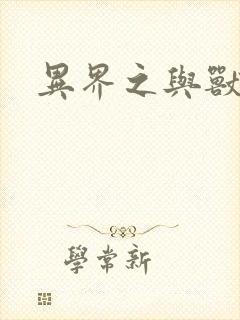 異界之與獸
學常新